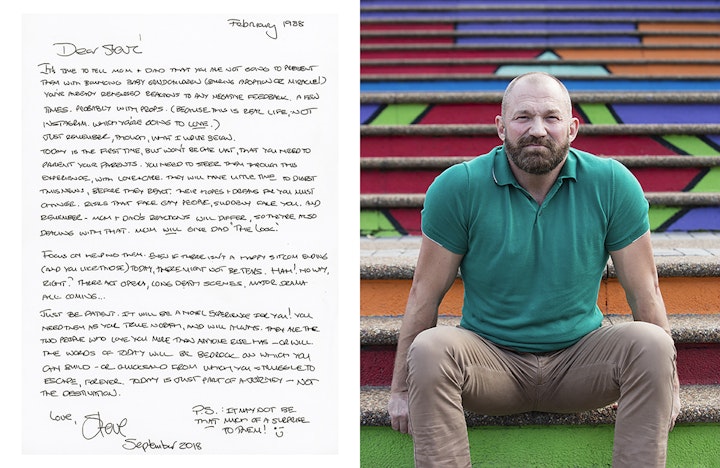 February 1988
Dear Steve!
It's time to tell Mom + Dad that you are not going to present
them with bouncing baby grandchildren (barring adoption or miracle!)
You've already rehearsed reactions to any negative feedback. A few
times. Probably with props. (Because this is real life, not
Instagram. Which you're going to love.)
Just remember, though, what I write below.
Today is the first time, but won't be the last, that you need to
parent your parents. You need to steer them through this
experience, with love + care. They will have little time to digest
this news, before they react. Their hopes + dreams for you must
change. Risks that face gay people, suddenly face you. And
remember - Mom + Dad's reactions will differ, so they're also
dealing with that. Mom will give Dad 'The Look.'
Focus on helping them. Even if there isn't a happy sitcom ending
(and you like those) today, there might not be tears. Hah! No way,
right? Three act opera, long death scenes, major drama
all coming...
Just be patient. It will be a novel experience for you! You
need them as your true North, and will always. They are the
two people who love you more than anyone else has - or will
The words of today will be bedrock on which you
can build - or quicksand from which you struggle to
escape, forever. Today is just part of a journey - not
the destination.
Love,
Steve
September 2018
P.S.: It may not be
that much of a surprise
to them! :)